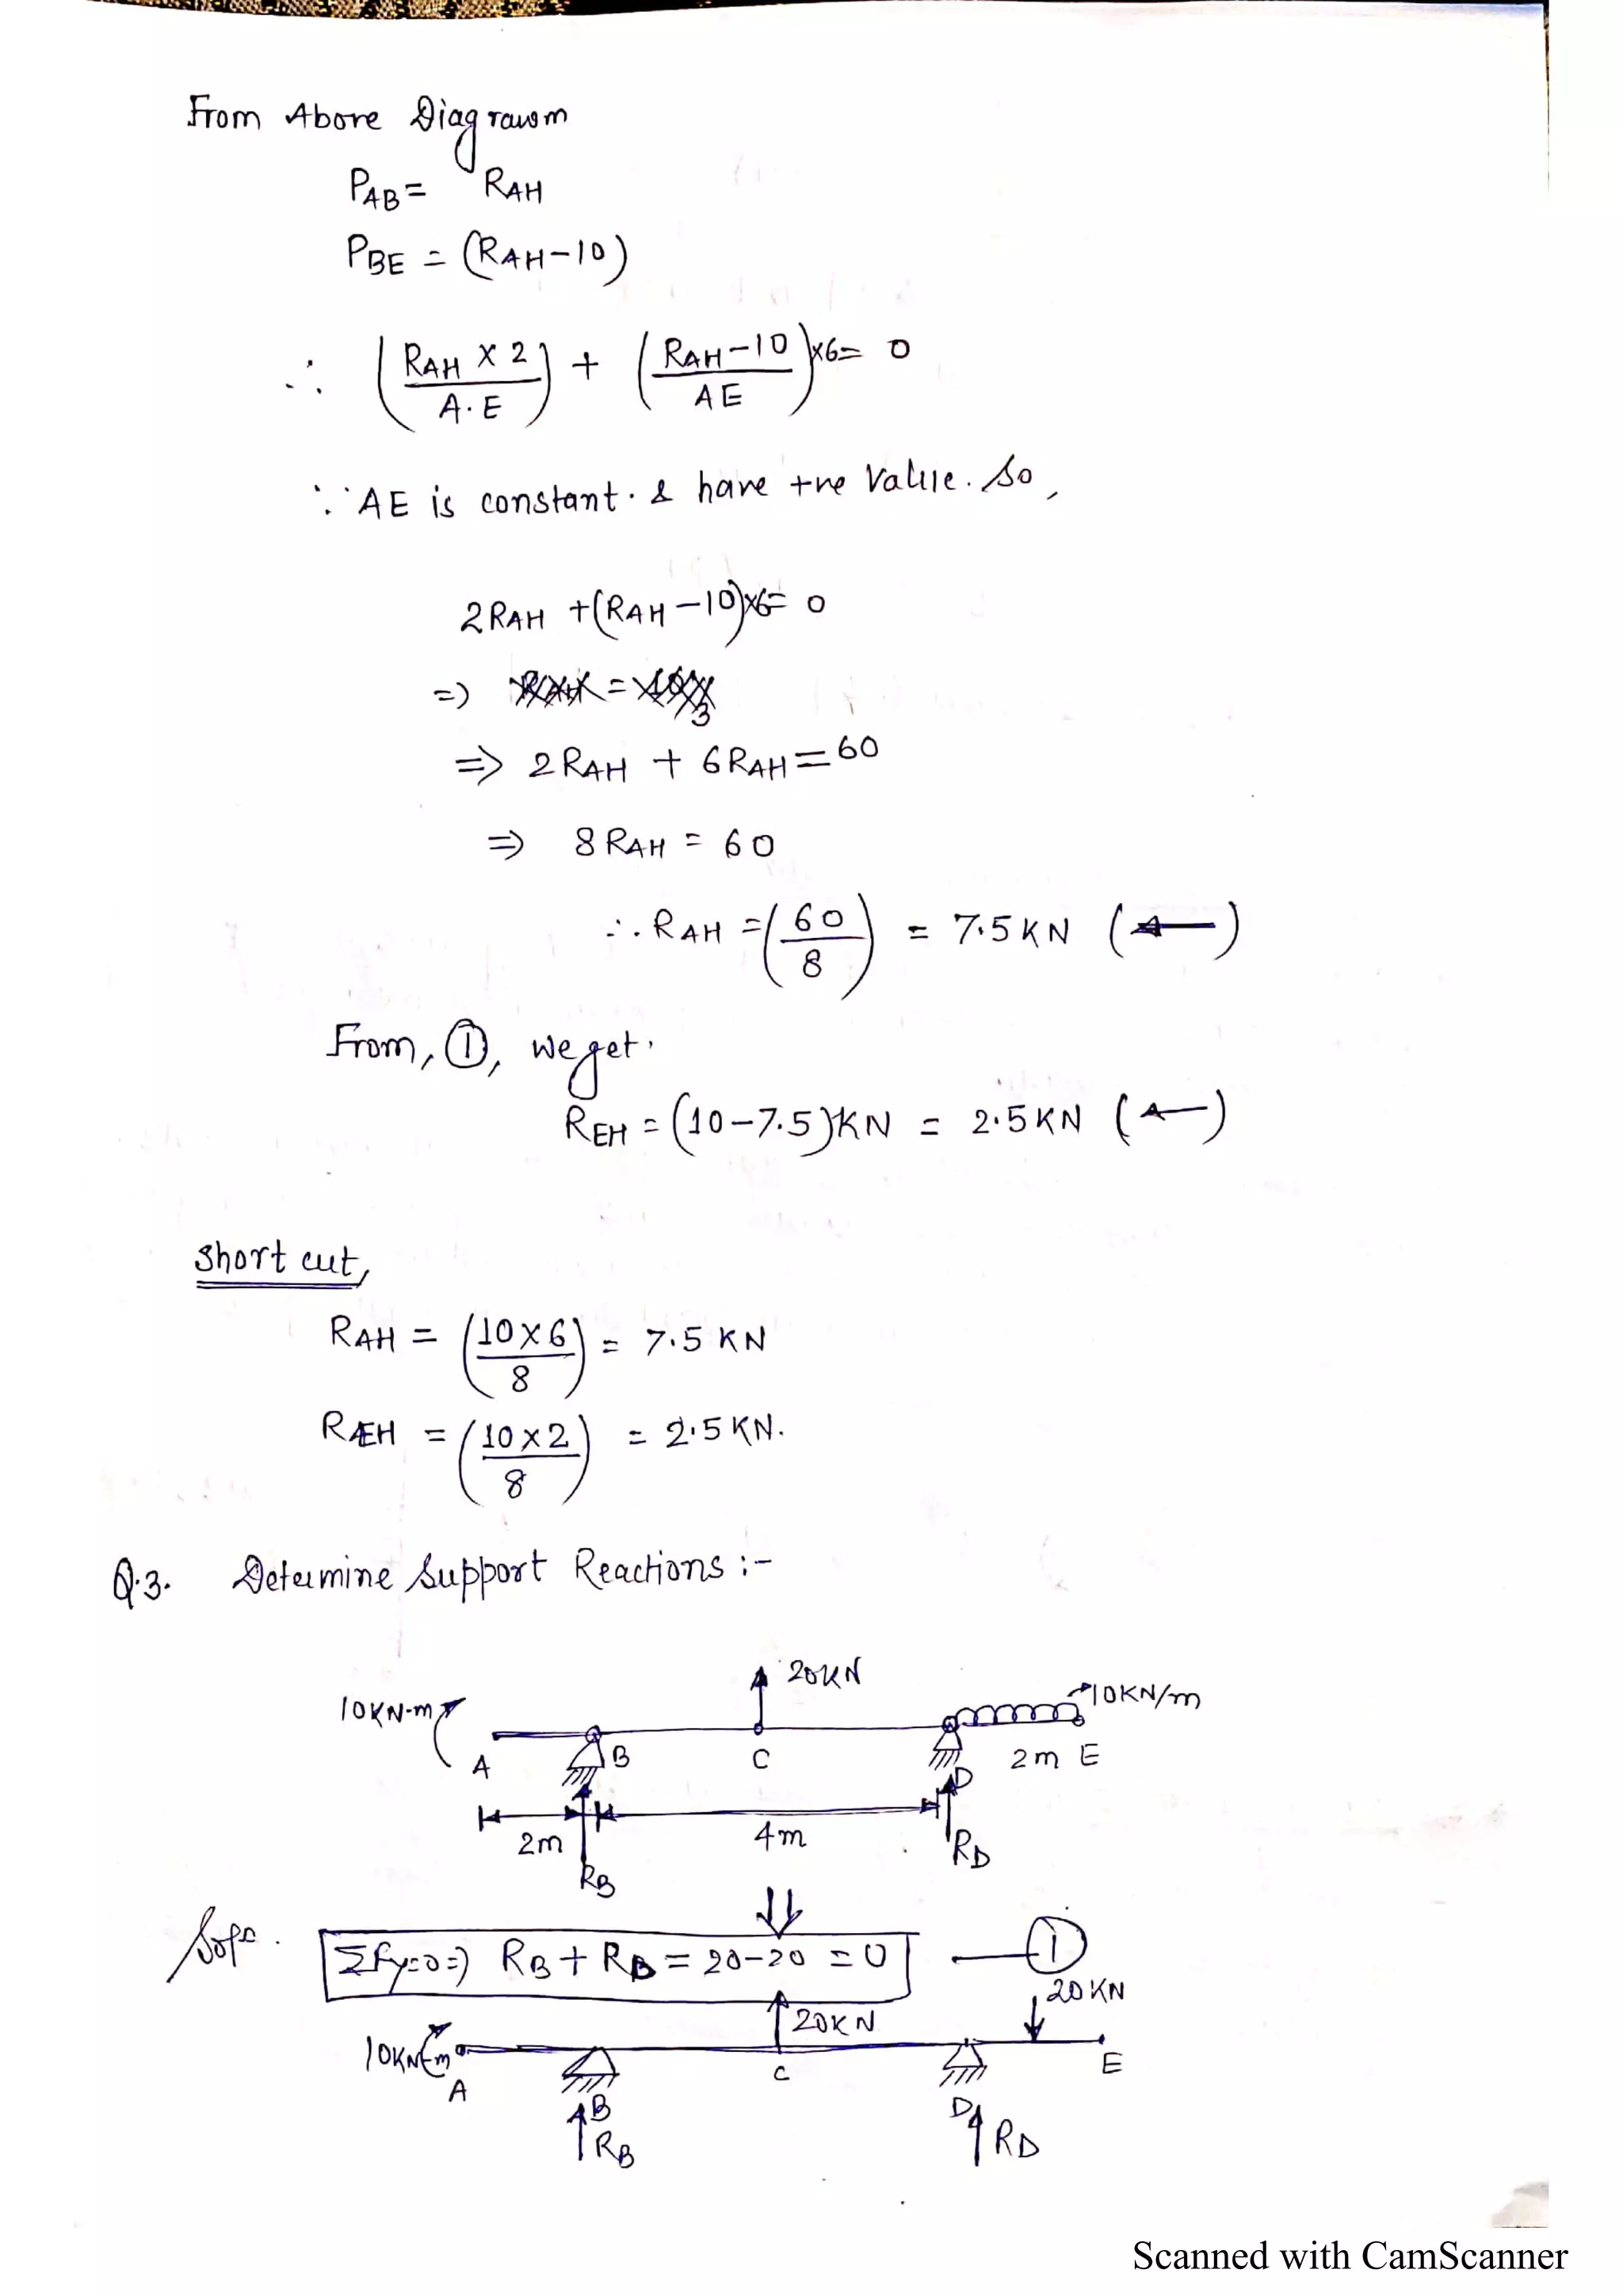 From Above Diagrawm
PAB = RAH
PBE = (RAH-10)
∴ (RAH X 2 / A.E) + (RAH-10 / AE)x6= 0
∵ AE is constant. & have +ve Value. So,
2RAH +(RAH-10)x6= 0
=)
=> 2RAH + 6RAH = 60
=> 8RAH = 60
∴ RAH = (60 / 8) = 7.5KN (←)
From, ①, we get.
REH = (10-7.5)KN = 2.5KN (←)
Short cut,
RAH = (10x6 / 8) = 7.5 KN
RÆH = (10x2 / 8) = 2.5KN.
Q.3. Determine Support Reactions :-
20KN
10KN-m 10KN/m
A B C D 2m E
2m 4m
RB RD
Soln.
ΣFy=0=) RB + RD = 20-20 = 0 — ①
20KN 20KN
10KN-m
A B C D E
RB RD
Scanned with CamScanner